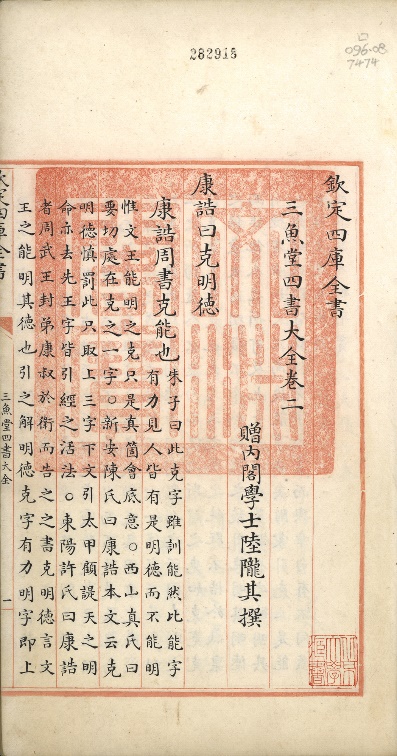 282915
096.08
7474
欽定四庫全書
三魚堂四書大全卷二
贈內閣學士陸隴其撰
康誥曰克明德
康誥周書克能也朱子曰此克字雖訓能然此能字
有力見人皆有是明德而不能明
惟文王能明之克只是真箇會底意○西山真氏曰
要切處在克之一字○新安陳氏曰康誥本文云克
明德慎罰此只取上三字下文引太甲顧諟天之明
命亦去先王字皆引經之活法○東陽許氏曰康誥
者周武王封弟康叔於衛而告之之書克明德言文
王之能明其德也引之解明德克字有力明字即上
欽定四庫全書
三魚堂四書大全
一